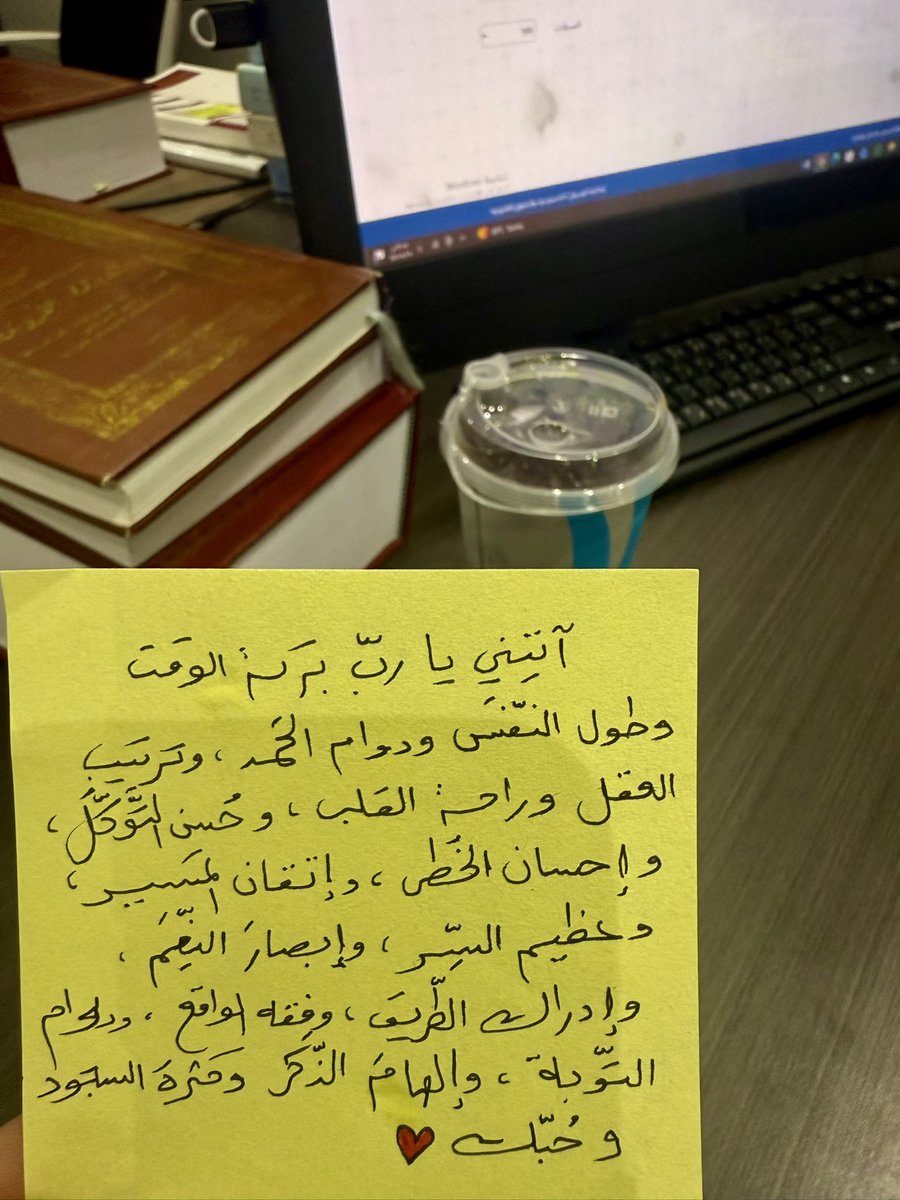 آتِنِي يا ربّ بَرَكةَ الوَقت
وطول النَّفَس ودوام الحَمد ، وتَرتيبَ
العقل وراحةَ القلب ، وحُسن التَّوَكُّل ،
وإحسان الخُطى ، وإتقان المَسير ،
وعظيم السِّر ، وإبصارَ النِّعَم ،
وإدراك الطَّريق ، وفِقه الواقع ، ودوام
التَّوبة ، وإلهامَ الذِّكر وكَثرةَ السجود
وحُبّك ❤